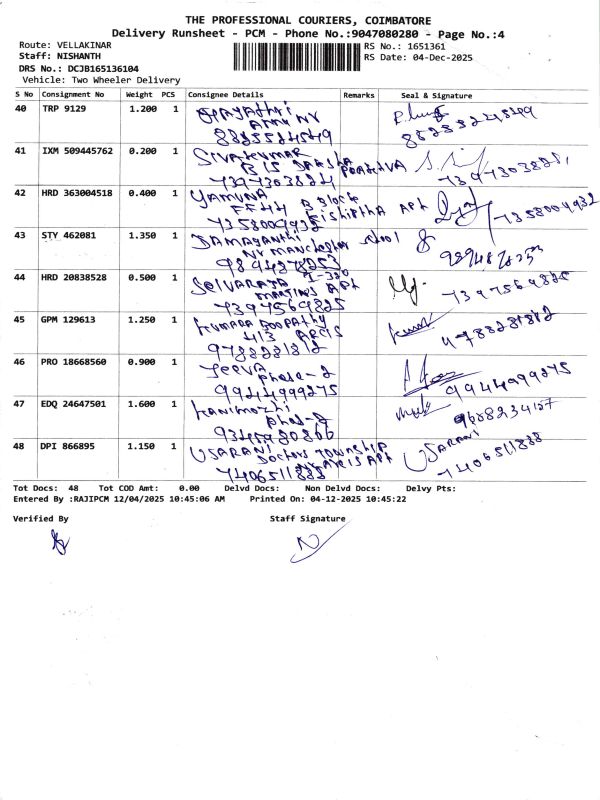 THE PROFESSIONAL COURIERS, COIMBATORE
Delivery Runsheet - PCM - Phone No.:9047080280 - Page No.:4
Route: VELLAKINAR
RS No.: 1651361
Staff: NISHANTH
RS Date: 04-Dec-2025
DRS No.: DCJB165136104
Vehicle: Two Wheeler Delivery
S No Consignment No Weight PCS Consignee Details Remarks Seal & Signature
40 TRP 9129 1.200 1
41 IXM 509445762 0.200 1 SIVAKUMAR
B 15 DAKSHA
7397303824
42 HRD 363004518 0.400 1 YAMUNA
FF44 B Block
7358009932 7358009932
43 STY 462081 1.350 1 DAMAYANTHI
NV MANCHESTER School
9894878253
44 HRD 20838528 0.500 1 SELVARAJ
MARTINS APt
7397569825 7397569825
45 GPM 129613 1.250 1 KUMARA BOOPATHY
413 ARCIS
9788281812 9788281812
46 PRO 18668560 0.900 1 JEEVA
Phase-2
9944999275 9944999275
47 EDQ 24647501 1.600 1 Kanimozhi
Phas-2
9345980866
48 DPI 866895 1.150 1 USARANI USARANI
DOCTORS TOWNSHIP
7406511888 7406511888
Tot Docs: 48 Tot COD Amt: 0.00 Delvd Docs: Non Delvd Docs: Delvy Pts:
Entered By :RAJIPCM 12/04/2025 10:45:06 AM Printed On: 04-12-2025 10:45:22
Verified By Staff Signature